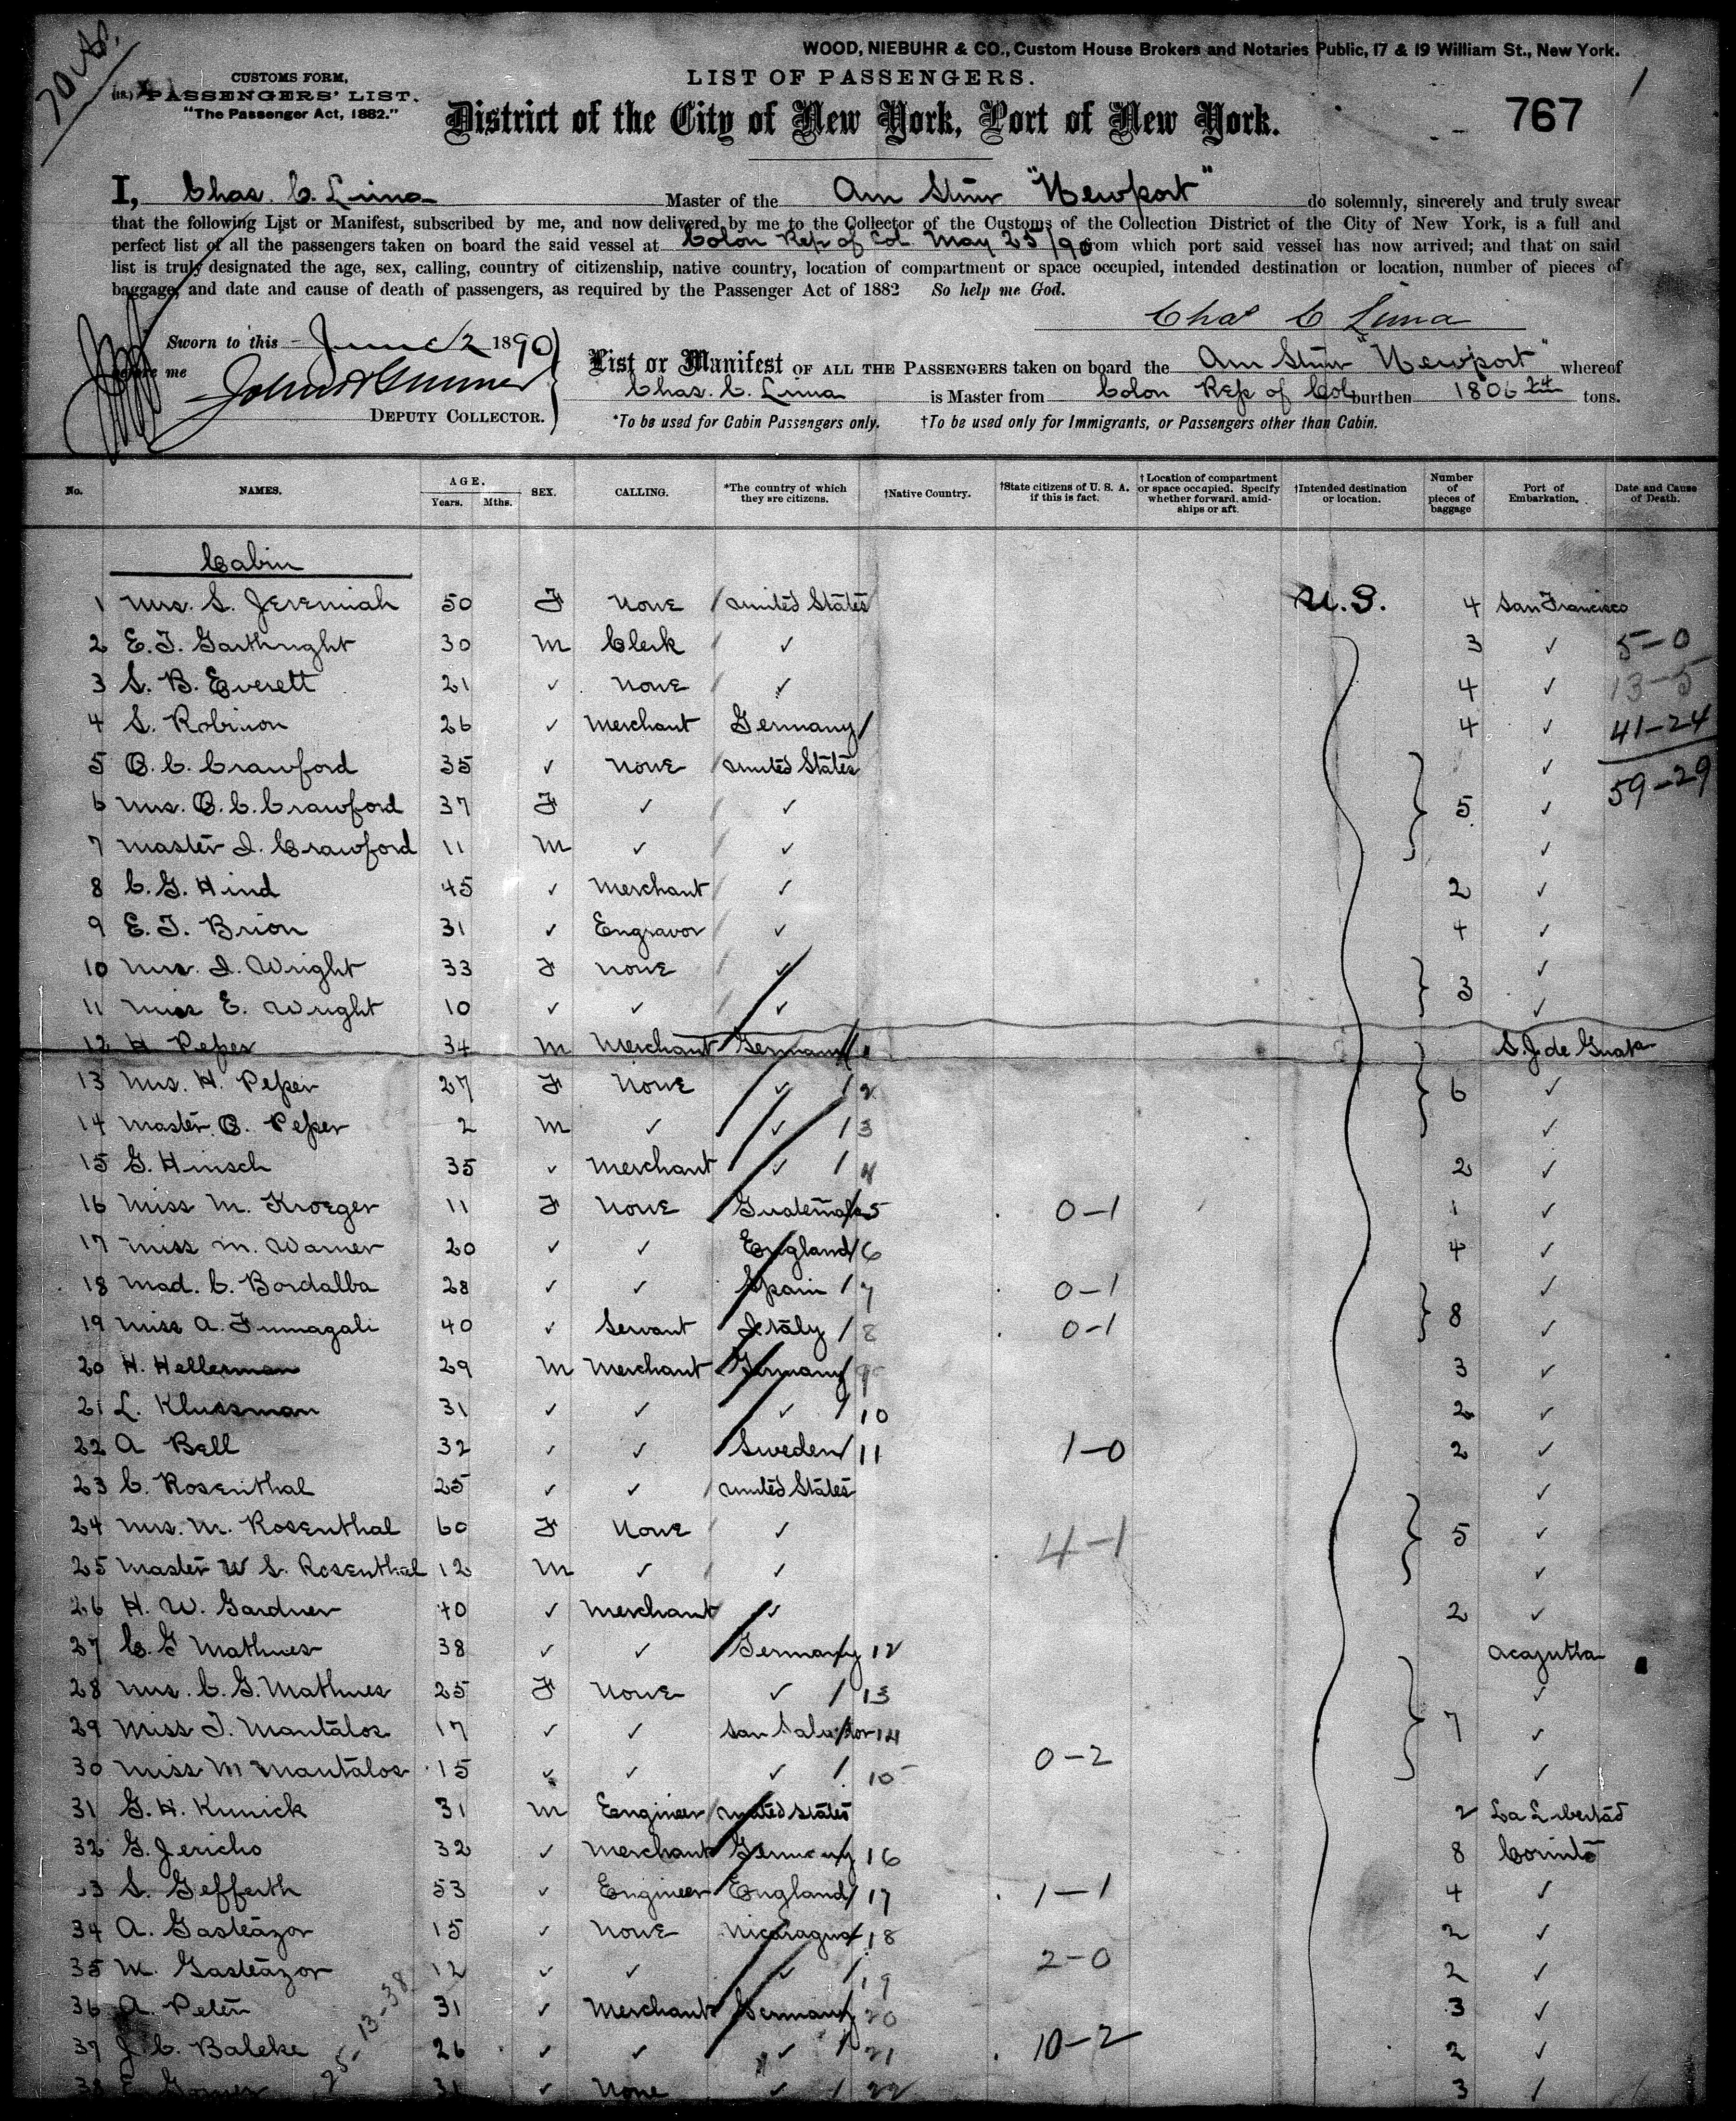 70 
WOOD, NIEBUHR & CO., Custom House Brokers and Notaries Public, 17 & 19 William St., New York.
CUSTOMS FORM,
LIST OF PASSENGERS.
(18.) PASSENGERS' LIST.
"The Passenger Act, 1882."
District of the City of New York, Port of New York.
767
I, Chas. C. Lima Master of the Am Stmr "Newport" do solemnly, sincerely and truly swear
that the following List or Manifest, subscribed by me, and now delivered by me to the Collector of the Customs of the Collection District of the City of New York, is a full and
perfect list of all the passengers taken on board the said vessel at Colon Rep of Col May 25/90 from which port said vessel has now arrived; and that on said
list is truly designated the age, sex, calling, country of citizenship, native country, location of compartment or space occupied, intended destination or location, number of pieces of
baggage, and date and cause of death of passengers, as required by the Passenger Act of 1882 So help me God.
Chas C Lima
Sworn to this June 2 1890
before me
DEPUTY COLLECTOR.
List or Manifest OF ALL THE PASSENGERS taken on board the Am Stmr "Newport" whereof
Chas. C. Lima is Master from Colon Rep of Col burthen 1806 24 tons.
*To be used for Cabin Passengers only. †To be used only for Immigrants, or Passengers other than Cabin.
No. NAMES. AGE. Years. Mths. SEX. CALLING. *The country of which they are citizens. †Native Country. †State citizens of U. S. A. if this is fact. †Location of compartment or space occupied. Specify whether forward, amidships or aft. †Intended destination or location. Number of pieces of baggage Port of Embarkation. Date and Cause of Death.
Cabin
1 Mrs. S. Jeremiah 50 F None / United States U.S. 4 San Francisco
2 E. T. Garthright 30 M Clerk / ✓ 3 ✓ 5-0
3 S. B. Everett 21 ✓ None / ✓ 4 ✓ 13-5
4 S. Robinson 26 ✓ Merchant Germany / 4 ✓ 41-24
5 O. C. Crawford 35 ✓ None / United States ✓ 59-29
6 Mrs. O. C. Crawford 37 F ✓ / ✓ 5 ✓
7 Master I. Crawford 11 M ✓ / ✓ ✓
8 C. G. Hind 45 ✓ Merchant / ✓ 2 ✓
9 E. T. Brion 31 ✓ Engravor / ✓ 4 ✓
10 Mrs. I. Wright 33 F None / ✓ ✓
11 Miss E. Wright 10 ✓ ✓ / ✓ 3 ✓
12 H Peper 34 M Merchant Germany / 1 S. J. de Guata
13 Mrs. H. Peper 27 F None ✓ / 2 6 ✓
14 Master O. Peper 2 M ✓ ✓ / 3 ✓
15 G. Hinsch 35 ✓ Merchant ✓ / 4 2 ✓
16 Miss M. Kroeger 11 F None Guatemala / 5 0-1 1 ✓
17 Miss M. Warner 20 ✓ ✓ England / 6 4 ✓
18 Mad. C. Bordalba 28 ✓ ✓ Spain / 7 0-1 ✓
19 Miss A. Fumagali 40 ✓ Servant Italy / 8 0-1 8 ✓
20 H. Hellerman 29 M Merchant Germany / 9 3 ✓
21 L. Klussman 31 ✓ ✓ ✓ / 10 2 ✓
22 A Bell 32 ✓ ✓ Sweden / 11 1-0 2 ✓
23 C. Rosenthal 25 ✓ ✓ / United States ✓
24 Mrs. M. Rosenthal 60 F None / ✓ 4-1 5 ✓
25 Master W S. Rosenthal 12 M ✓ / ✓ ✓
26 H. W. Gardner 40 ✓ Merchant / ✓ 2 ✓
27 C. G Mathies 38 ✓ ✓ Germany / 12 Acajutla
28 Mrs. C. G. Mathies 25 F None ✓ / 13 ✓
29 Miss J. Mantalos 17 ✓ ✓ San Salvador / 14 7 ✓
30 Miss M Mantalos 15 ✓ ✓ ✓ / 15 0-2 ✓
31 G. H. Kunick 31 M Engineer / United States 2 La Libertad
32 G. Jericho 32 ✓ Merchant Germany / 16 8 Corinto
33 S. Gefferth 53 ✓ Engineer England / 17 1-1 4 ✓
34 A. Gasteazor 15 ✓ None Nicaragua / 18 2 ✓
35 M. Gasteazor 12 ✓ ✓ ✓ / 19 2-0 2 ✓
36 A. Peten 31 ✓ Merchant Germany / 20 3 ✓
37 J. C. Baleke 26 ✓ ✓ ✓ / 21 10-2 2 ✓
38 31 ✓ None ✓ / 22 3 /